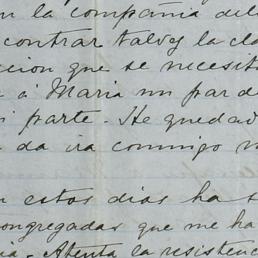 n la compañia del
contrar talvez la cla
cion que se necesit
a Maria un par de
i parte. He quedad
da ira conmigo
n estos dias ha s
congregadas que me ha
ia. Atenta la resistenc